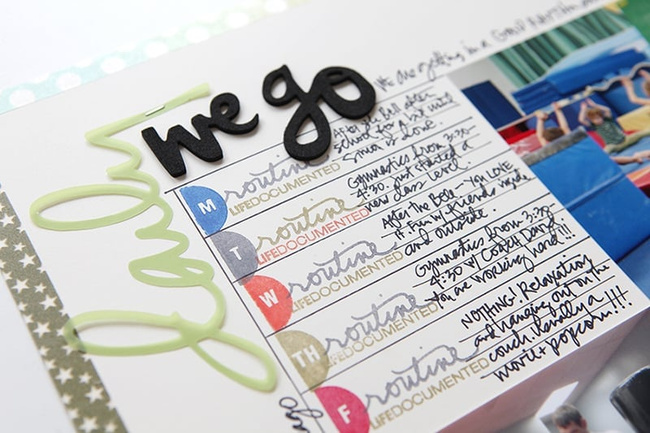 we go
We are getting in a GOOD
M
routine
LIFEDOCUMENTED
After the bell after
school for a bit until
is done.
T
routine
LIFEDOCUMENTED
Gymnastics from 3:30-
4:30. just started a
new class level.
W
routine
LIFEDOCUMENTED
After the bell - you LOVE
it. Fun w/ friends inside
and outside.
TH
routine
LIFEDOCUMENTED
Gymnastics from 3:30-
4:30 w/ Coach Dan!
You are working hard!!!
F
routine
LIFEDOCUMENTED
NOTHING! Relaxation
and hanging out on the
couch. Usually a
movie + popcorn!!!